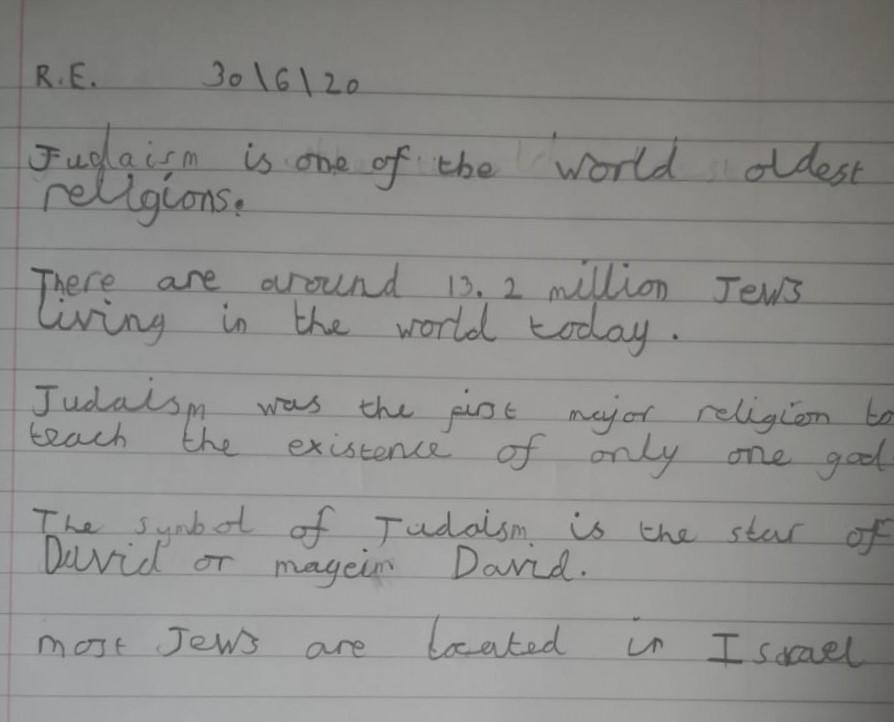 R.E. 30\6\20
Judaism is one of the world oldest
religions.
There are around 13.2 million Jews
living in the world today.
Judaism was the first major religion to
teach the existence of only one god
The symbol of Judaism is the star of
David or magein David.
most Jews are located in Israel